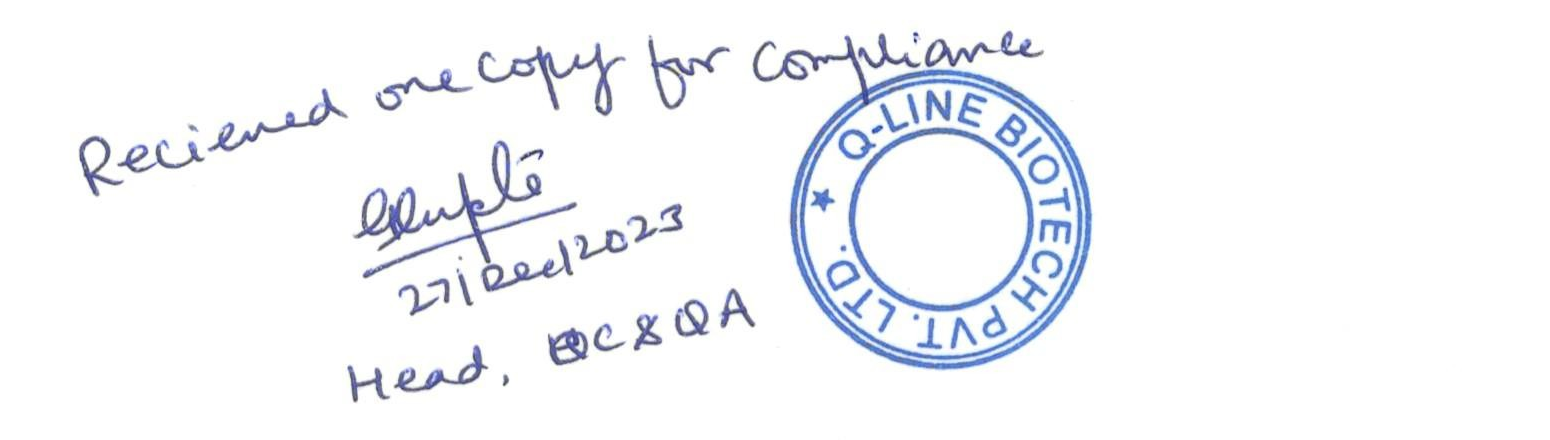 Recieved one copy for compliance
Gupta
27/Dec/2023
Head, QC & QA
Q-LINE BIOTECH PVT. LTD.